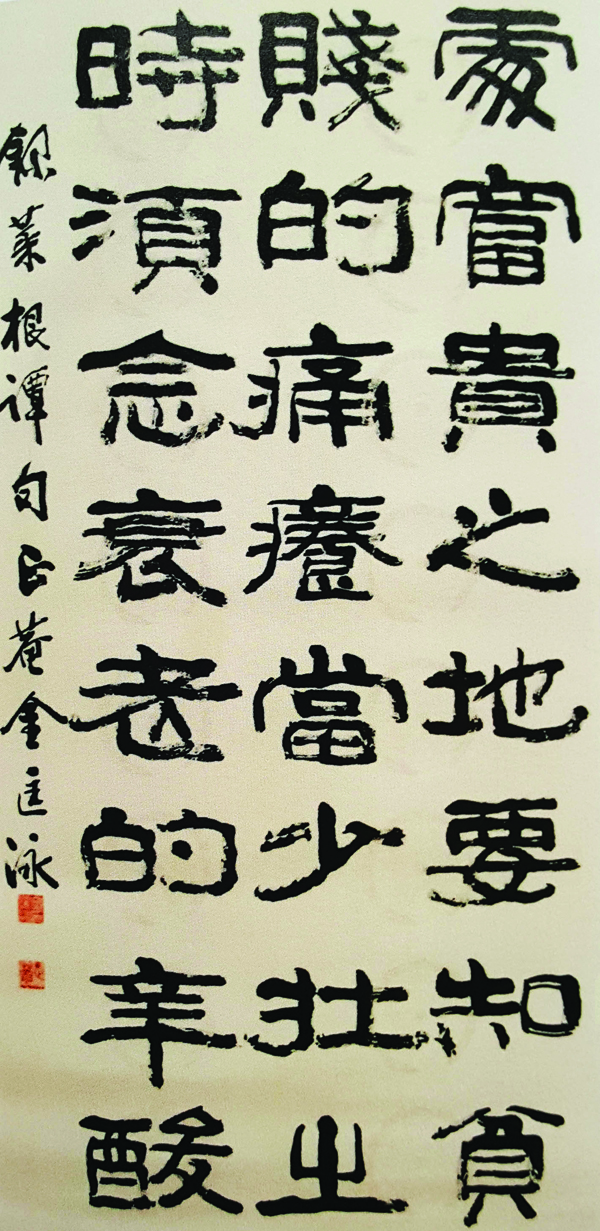 處富貴之地要知貧
賤的痛癢當少壯之
時須念衰老的辛酸
錄菜根譚句正菴金匡泳